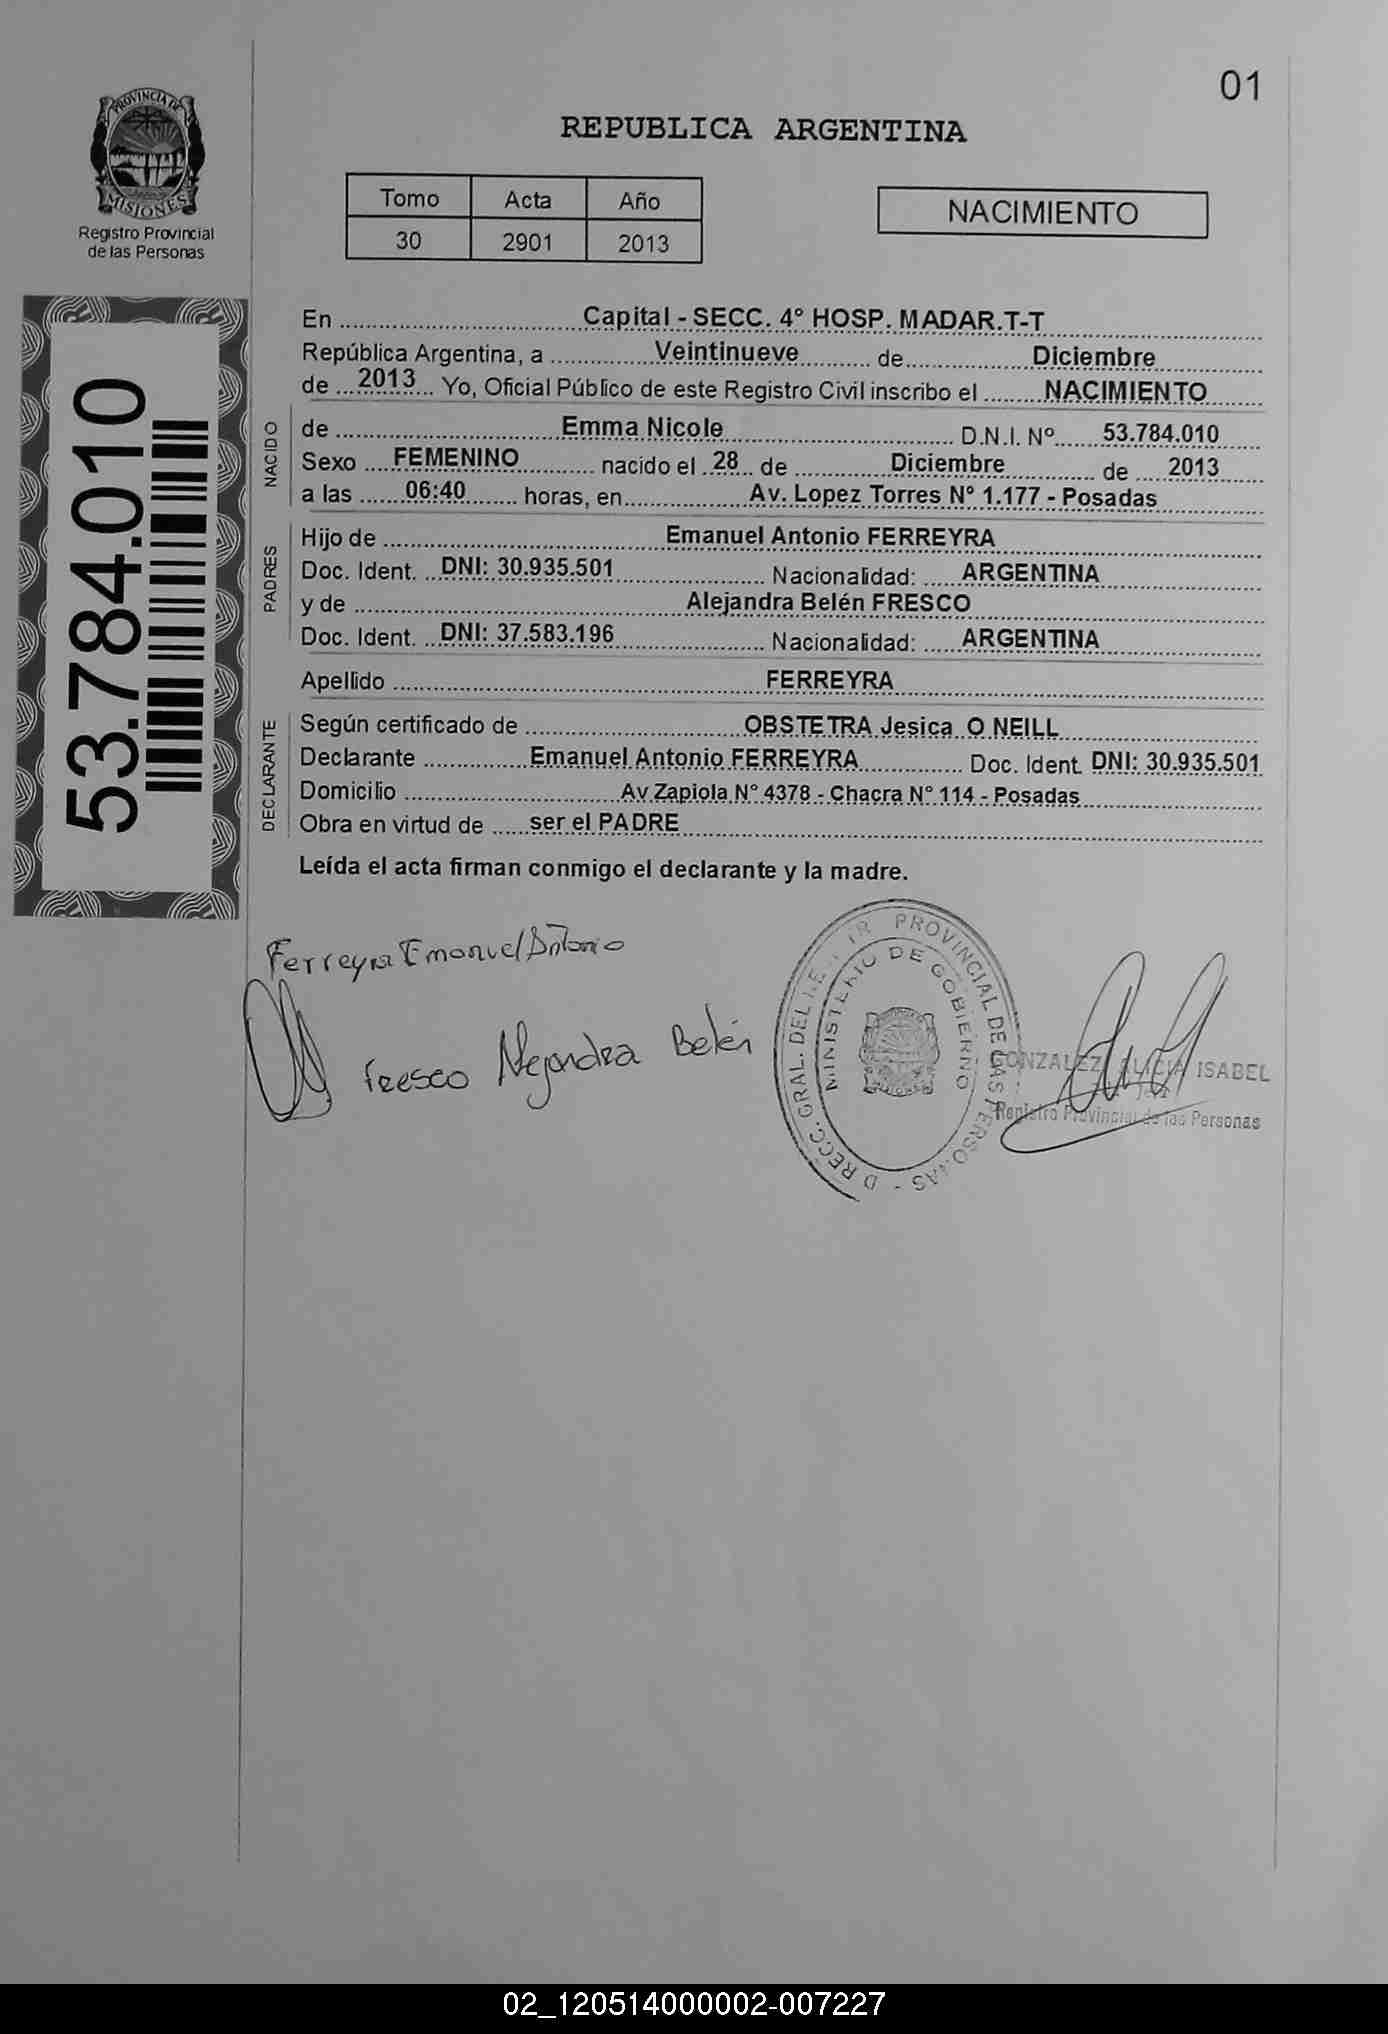 01
PROVINCIA DE
MISIONES
Registro Provincial
de las Personas
REPUBLICA ARGENTINA
Tomo Acta Año
30 2901 2013
NACIMIENTO
53.784.010
En Capital - SECC. 4° HOSP. MADAR.T-T
República Argentina, a Veintinueve de Diciembre
de 2013 Yo, Oficial Público de este Registro Civil inscribo el NACIMIENTO
NACIDO
de Emma Nicole D.N.I. Nº 53.784.010
Sexo FEMENINO nacido el 28 de Diciembre de 2013
a las 06:40 horas, en Av. Lopez Torres N° 1.177 - Posadas
PADRES
Hijo de Emanuel Antonio FERREYRA
Doc. Ident. DNI: 30.935.501 Nacionalidad: ARGENTINA
y de Alejandra Belén FRESCO
Doc. Ident. DNI: 37.583.196 Nacionalidad: ARGENTINA
Apellido FERREYRA
DECLARANTE
Según certificado de OBSTETRA Jesica O NEILL
Declarante Emanuel Antonio FERREYRA Doc. Ident. DNI: 30.935.501
Domicilio Av Zapiola N° 4378 - Chacra N° 114 - Posadas
Obra en virtud de ser el PADRE
Leída el acta firman conmigo el declarante y la madre.
Ferreyra Emanuel Antonio
Fresco Alejandra Belén
GRAL. DEL PROVINCIAL DE LAS PERSONAS
MINISTERIO DE GOBIERNO
GONZALEZ ALICIA ISABEL
Registro Provincial de las Personas
02_120514000002-007227